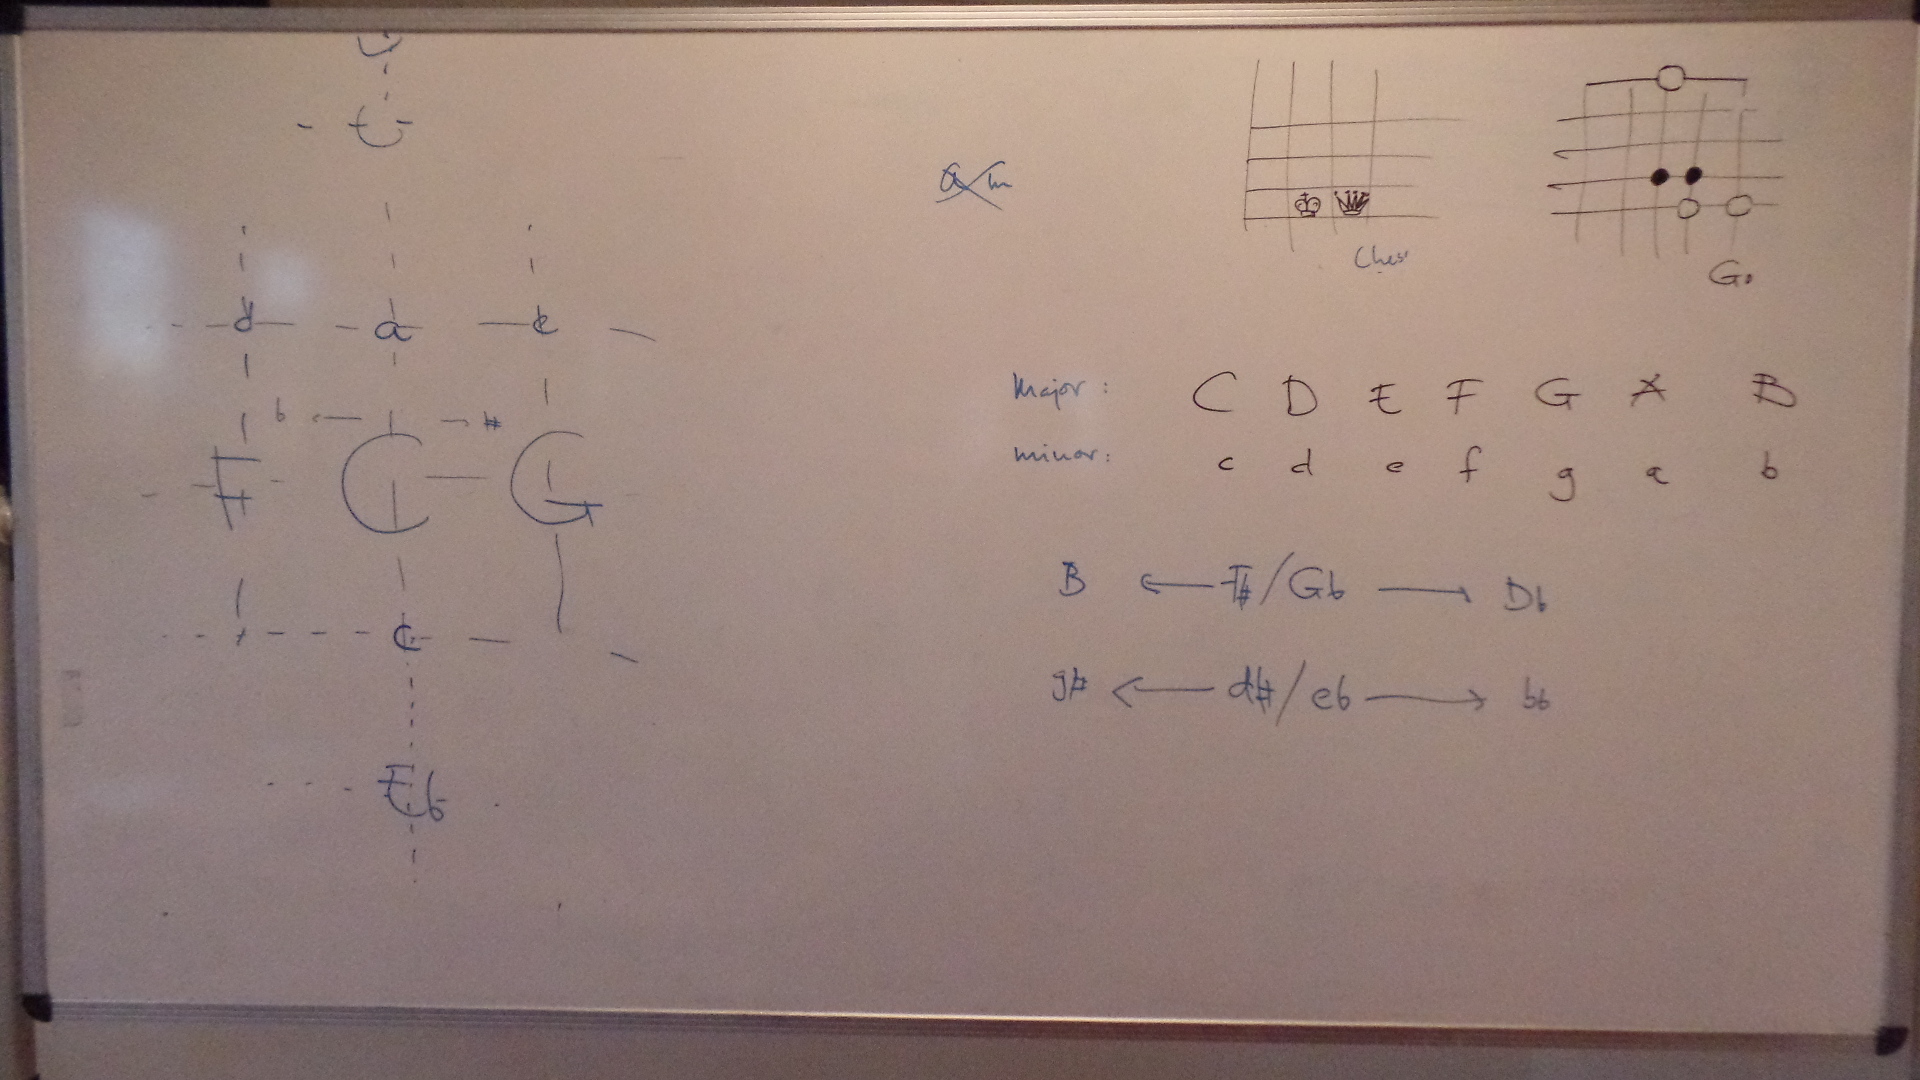 am
Chess
Go
d a e
b #
F C G
c
Eb
Major: C D E F G A B
minor: c d e f g a b
B ← F#/Gb → Db
g# ← d#/eb → bb